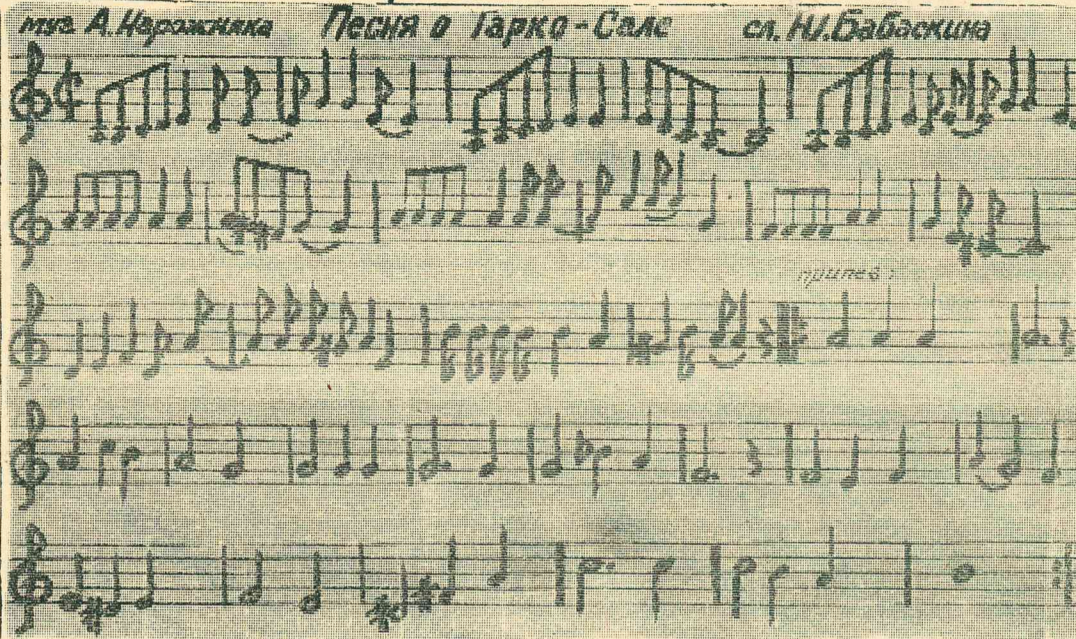 муз. А. Нарожняка Песня о Тарко-Сале сл. Ю. Бабаскина
припев: